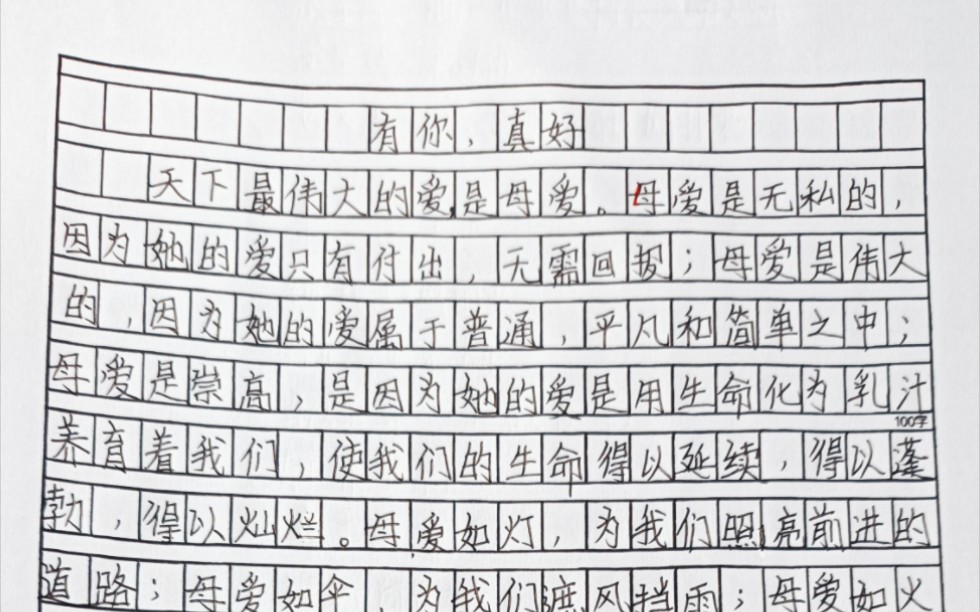 有你，真好
天下最伟大的爱,是母爱。母爱是无私的，
因为她的爱只有付出，无需回报；母爱是伟大
的，因为她的爱属于普通，平凡和简单之中；
母爱是崇高，是因为她的爱是用生命化为乳汁
100字
养育着我们，使我们的生命得以延续，得以蓬
勃，得以灿烂。母爱如灯，为我们照亮前进的
道路；母爱如伞，为我们遮风挡雨；母爱如火